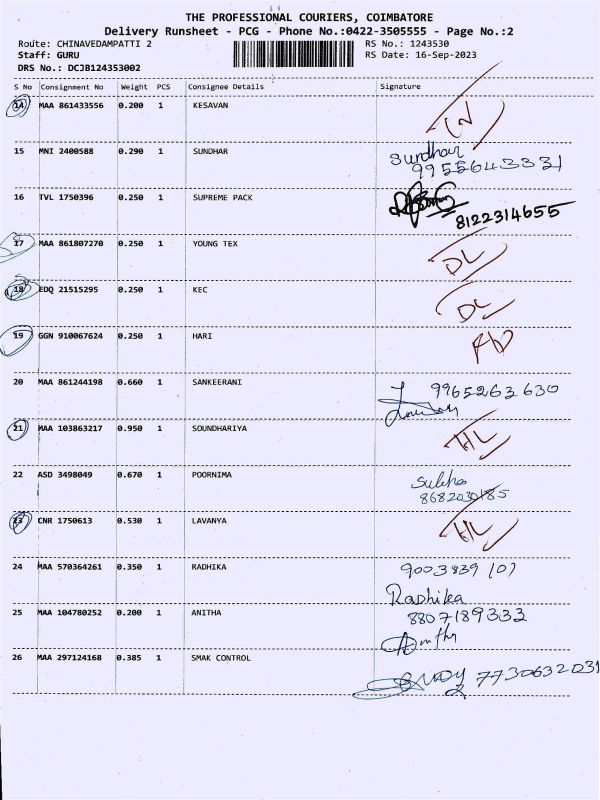 THE PROFESSIONAL COURIERS, COIMBATORE
Delivery Runsheet - PCG - Phone No.:0422-3505555 - Page No.:2
Route: CHINAVEDAMPATTI 2 RS No.: 1243530
Staff: GURU RS Date: 16-Sep-2023
DRS No.: DCJB124353002
S No Consignment No Weight PCS Consignee Details Signature
14 MAA 861433556 0.200 1 KESAVAN
15 MNI 2400588 0.290 1 SUNDHAR Sundhar
9955643331
16 TVL 1750396 0.250 1 SUPREME PACK
8122314655
17 MAA 861807270 0.250 1 YOUNG TEX DL
18 EDQ 21515295 0.250 1 KEC DL
19 GGN 910067624 0.250 1 HARI
20 MAA 861244198 0.660 1 SANKEERANI 9965263630
21 MAA 103863217 0.950 1 SOUNDHARIYA HL
22 ASD 3498049 0.670 1 POORNIMA
8682030185
23 CNR 1750613 0.530 1 LAVANYA HL
24 MAA 570364261 0.350 1 RADHIKA 9003839101
Radhika
25 MAA 104780252 0.200 1 ANITHA 8807189333
26 MAA 297124168 0.385 1 SMAK CONTROL
7730632031